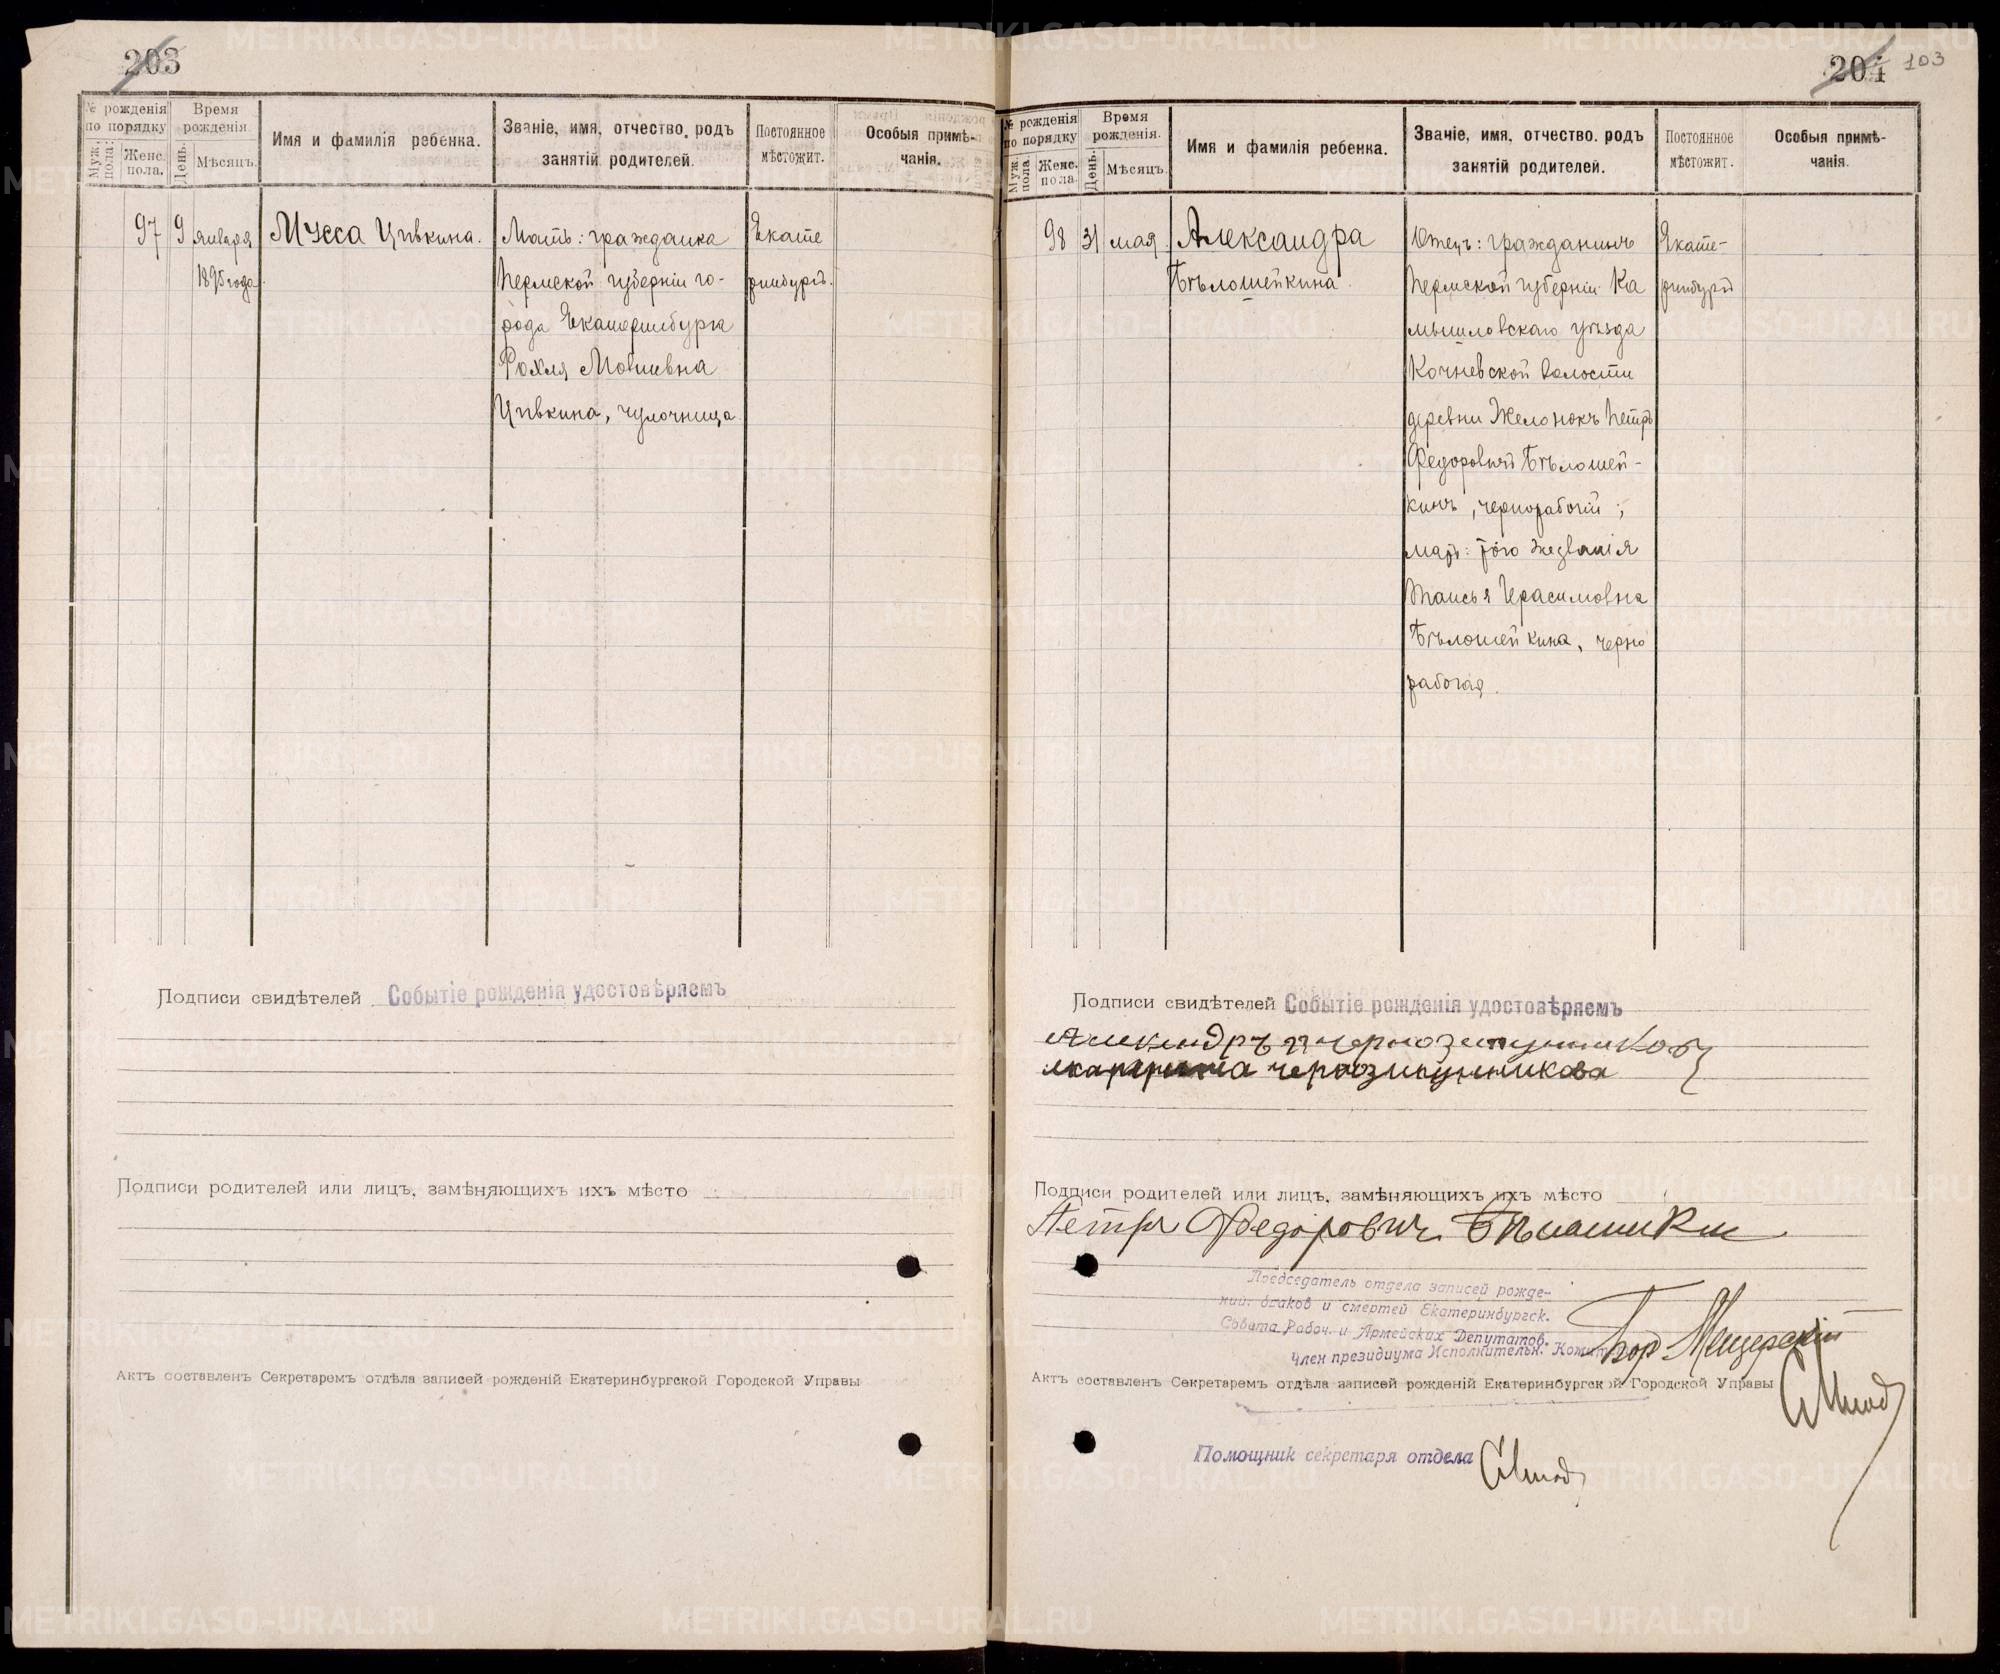 203
№ рожденія по порядку
Муж. пола.
Женс. пола.
Время рожденія.
День.
Мѣсяцъ.
Имя и фамилія ребенка.
Званіе, имя, отчество, родъ
занятій родителей.
Постоянное
мѣстожит.
Особыя примѣ-
чанія.
97 9 января
1895 года
Мусса Цивкина.
Мать: гражданка
Пермской губерніи го-
рода Екатеринбурга
Рохля Мовшевна
Цивкина, чулочница
Екате
ринбургъ.
Подписи свидѣтелей Событіе рожденія удостовѣряемъ
Подписи родителей или лицъ, замѣняющихъ ихъ мѣсто
Актъ составленъ Секретаремъ отдѣла записей рожденій Екатеринбургской Городской Управы
204 103
№ рожденія
по порядку
Муж. пола.
Женс. пола.
Время
рожденія.
День.
Мѣсяцъ.
Имя и фамилія ребенка.
Званіе, имя, отчество, родъ
занятій родителей.
Постоянное
мѣстожит.
Особыя примѣ-
чанія.
98 31 мая
Александра
Бѣлошейкина.
Отецъ: гражданинъ
Пермской губерніи Ка
мышловскаго уѣзда
Кочневской волости
деревни Желонокъ Петръ
Федоровичъ Бѣлошей-
кинъ, чернорабочій;
мать: того же званія
Таисья Герасимовна
Бѣлошейкина, черно
рабочая.
Екате-
ринбургъ
Подписи свидѣтелей Событіе рожденія удостовѣряемъ
Подписи родителей или лицъ, замѣняющихъ ихъ мѣсто
Петръ Федоровичъ
Председатель отдела записей рожде-
ний, браков и смертей Екатеринбургск.
Совета Рабоч. и Армейских Депутатов.
Член президиума Исполнительн. Комит
Актъ составленъ Секретаремъ отдѣла записей рожденій Екатеринбургской Городской Управы
Помощник секретаря отдела
METRIKI.GASO-URAL.RU